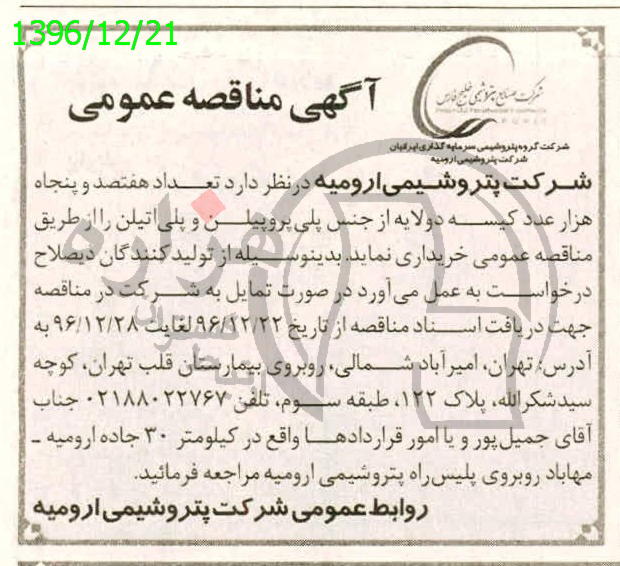 1396/12/21
شرکت صنایع پتروشیمی خلیج فارس
شرکت گروه پتروشیمی سرمایه گذاری ایرانیان
شرکت پتروشیمی ارومیه
آگهی مناقصه عمومی
شرکت پتروشیمی ارومیه در نظر دارد تعداد هفتصد و پنجاه
هزار عدد کیسه دولایه از جنس پلی پروپیلن و پلی اتیلن را از طریق
مناقصه عمومی خریداری نماید. بدینوسیله از تولیدکنندگان ذیصلاح
درخواست به عمل می آورد در صورت تمایل به شرکت در مناقصه
جهت دریافت اسناد مناقصه از تاریخ ۹۶/۱۲/۲۲ لغایت ۹۶/۱۲/۲۸ به
آدرس: تهران، امیرآباد شمالی، روبروی بیمارستان قلب تهران، کوچه
سیدشکرالله، پلاک ۱۲۲، طبقه سوم، تلفن ۰۲۱۸۸۰۲۲۷۶۷ جناب
آقای جمیل پور و یا امور قراردادها واقع در کیلومتر ۳۰ جاده ارومیه ـ
مهاباد روبروی پلیس راه پتروشیمی ارومیه مراجعه فرمائید.
روابط عمومی شرکت پتروشیمی ارومیه
هزاره